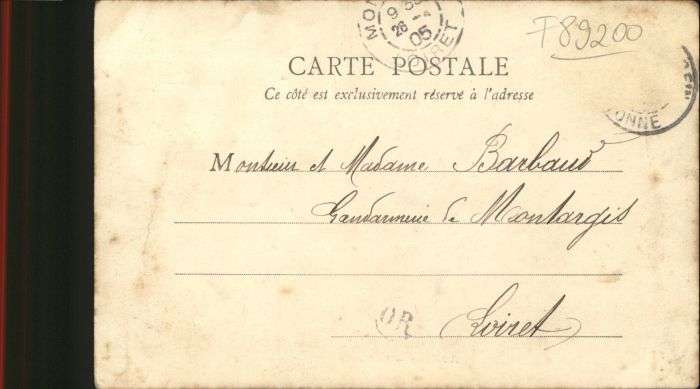 F89200
MON
9
26
05
IRET
YONNE
CARTE POSTALE
Ce côté est exclusivement réservé à l'adresse
Monsieur et Madame Barbaud
Gendarmerie de Montargis
OR
Loiret